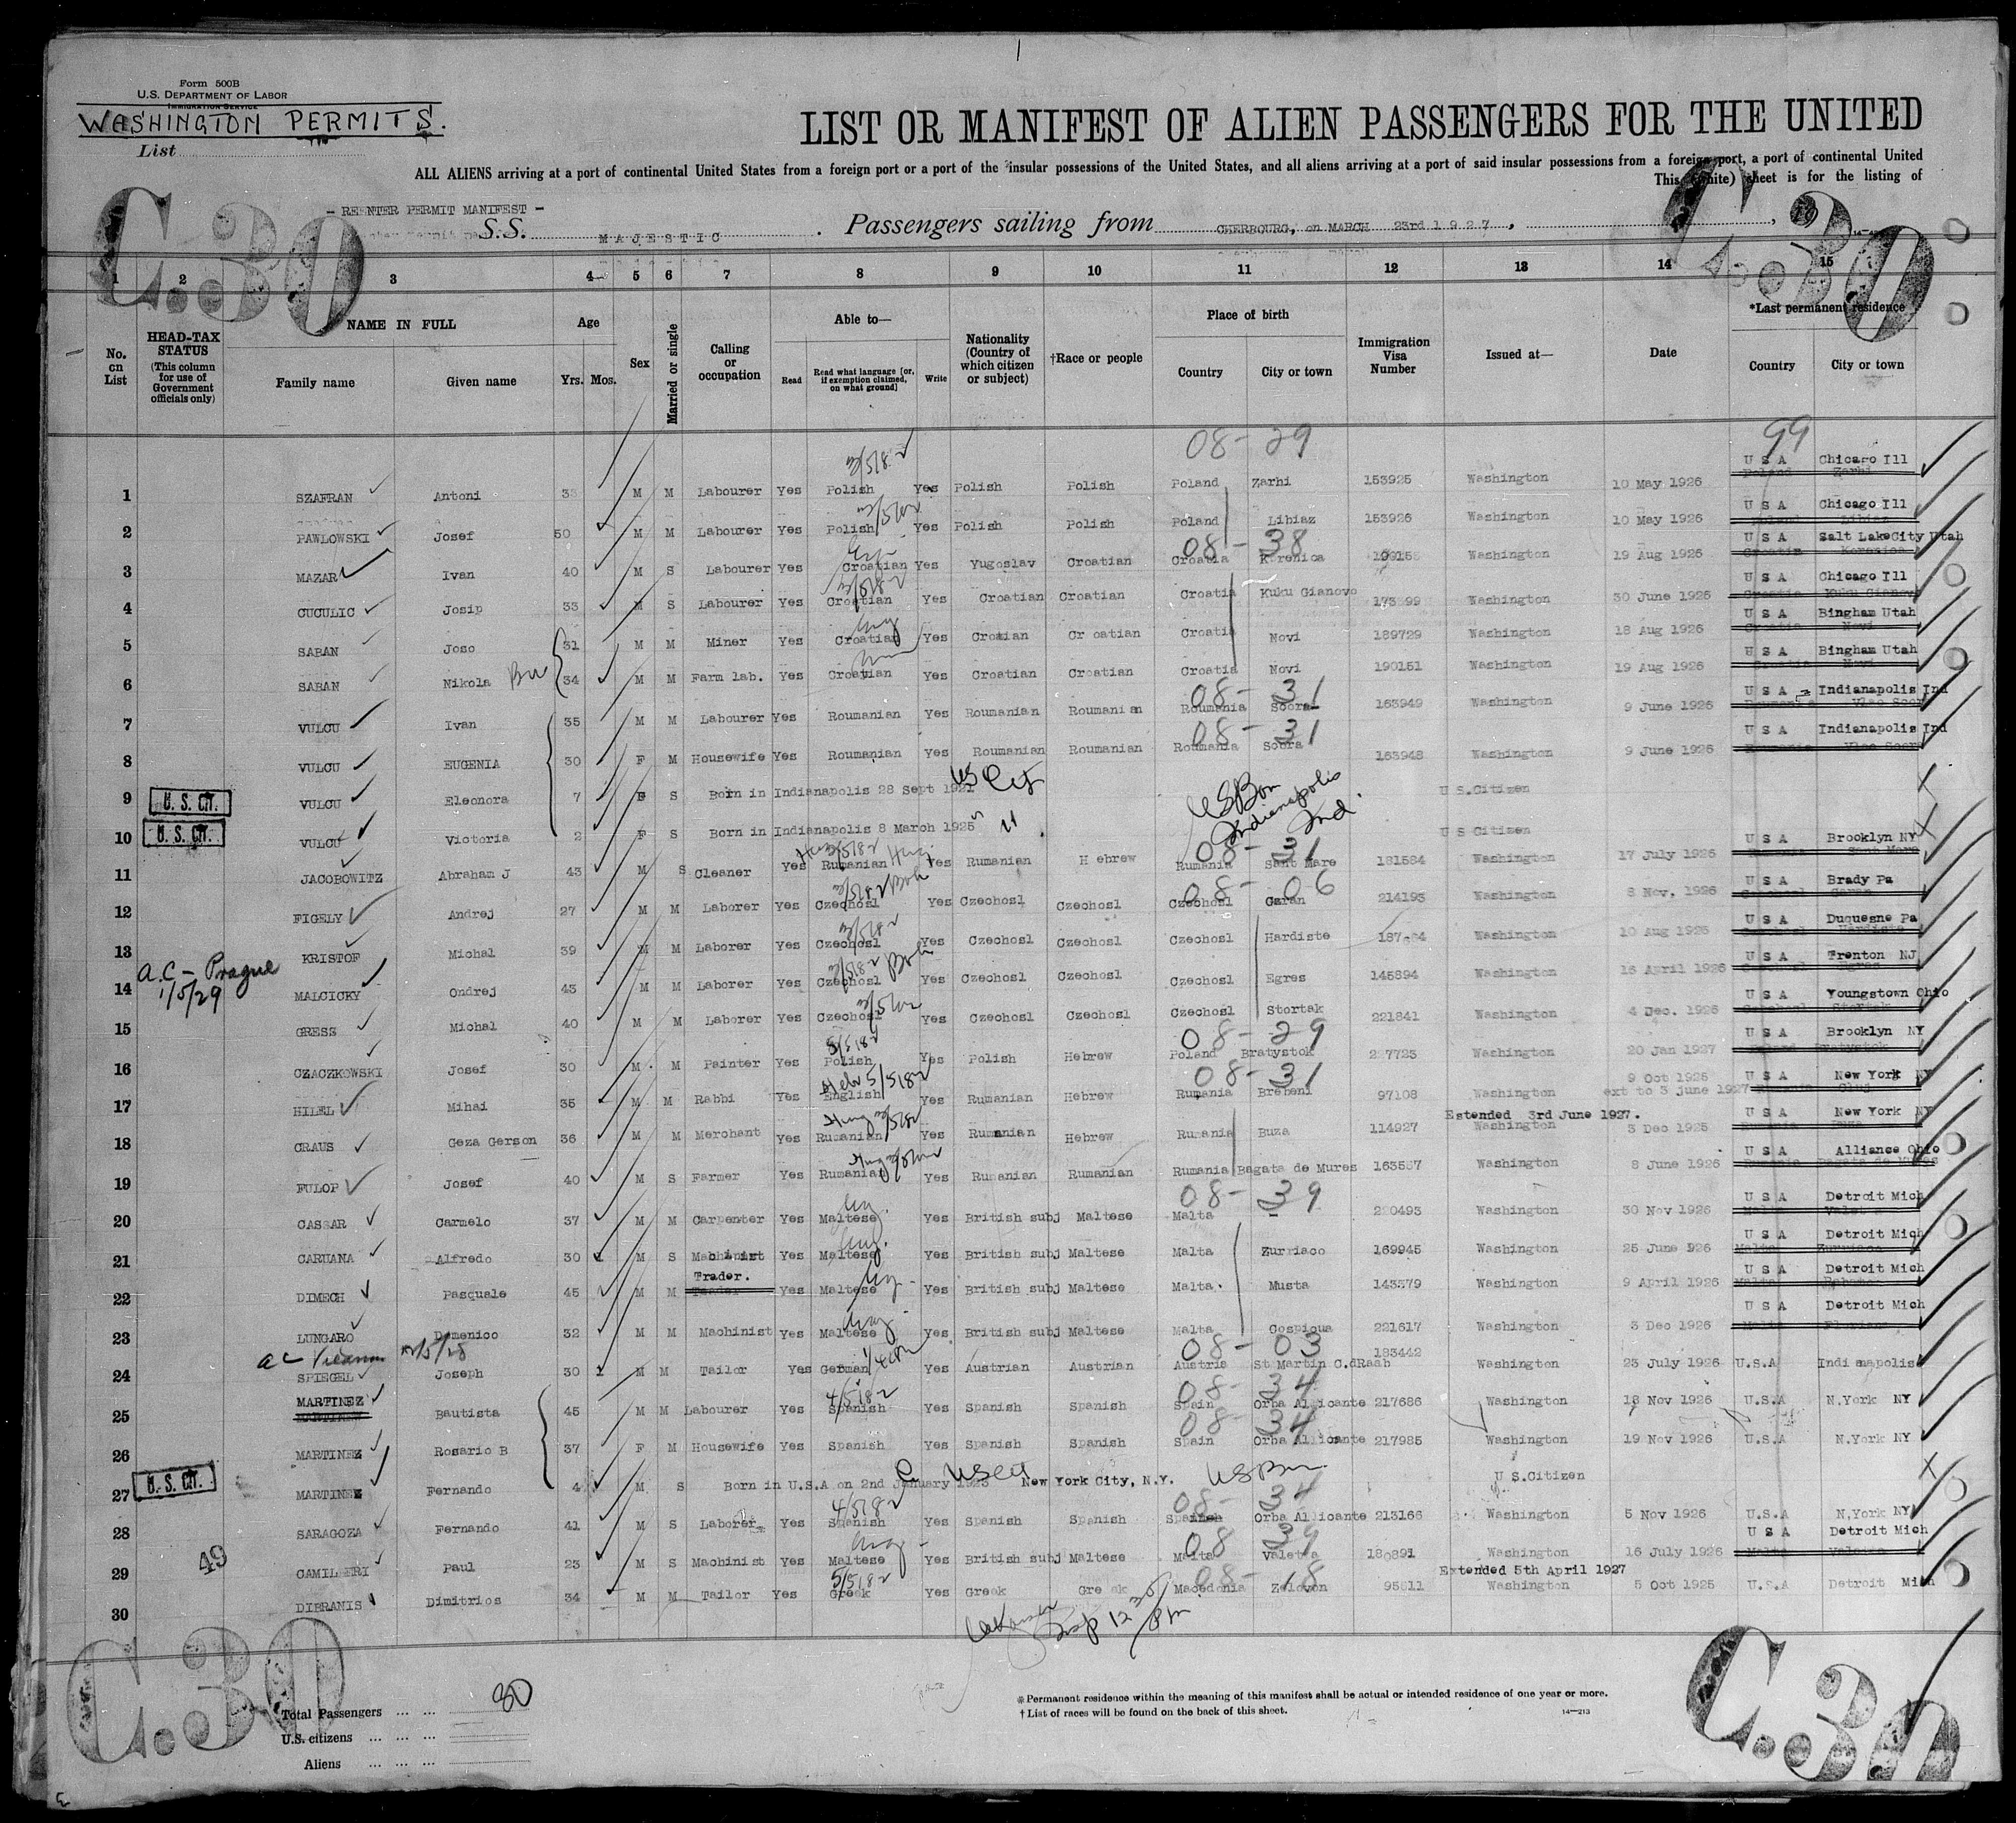 Form 500B
U.S. DEPARTMENT OF LABOR
IMMIGRATION SERVICE
WASHINGTON PERMITS.
List
LIST OR MANIFEST OF ALIEN PASSENGERS FOR THE UNITED
ALL ALIENS arriving at a port of continental United States from a foreign port or a port of the insular possessions of the United States, and all aliens arriving at a port of said insular possessions from a foreign port, a port of continental United
This (white) sheet is for the listing of
C.30 C.30
- REENTER PERMIT MANIFEST -
S.S. MAJESTIC. Passengers sailing from CHERBOURG, on MARCH 23rd 1927, , 19
1 2 3 4 5 6 7 8 9 10 11 12 13 14 15
No. on List
HEAD-TAX STATUS (This column for use of Government officials only)
NAME IN FULL Family name Given name
Age Yrs. Mos.
Sex
Married or single
Calling or occupation
Able to— Read Read what language [or, if exemption claimed, on what ground] Write
Nationality (Country of which citizen or subject)
†Race or people
Place of birth Country City or town
Immigration Visa Number
Issued at—
Date
*Last permanent residence Country City or town
08-29 99
1 SZAFRAN Antoni 33 M M Labourer Yes Polish Yes Polish Polish Poland Zarhi 153925 Washington 10 May 1926 U S A Chicago Ill
2 PAWLOWSKI Josef 50 M M Labourer Yes Polish Yes Polish Polish Poland Libiaz 153926 Washington 10 May 1926 U S A Chicago Ill
08-38
3 MAZAR Ivan 40 M S Labourer Yes Croatian Yes Yugoslav Croatian Croatia Korenica Washington 19 Aug 1926 U S A Salt LakeCity Utah
4 CUCULIC Josip 33 M S Labourer Yes Croatian Yes Croatian Croatian Croatia Kuku Gianovo Washington 30 June 1926 U S A Chicago Ill
5 SABAN Joso 31 M M Miner Yes Croatian Yes Croatian Cr oatian Croatia Novi 189729 Washington 18 Aug 1926 U S A Bingham Utah
6 SABAN Nikola 34 M M Farm lab. Yes Croatian Yes Croatian Croatian Croatia Novi 190151 Washington 19 Aug 1926 U S A Bingham Utah
08-31
7 VULCU Ivan 35 M M Labourer Yes Roumanian Yes Roumanian Roumanian Roumania Soora 163949 Washington 9 June 1926 U S A Indianapolis Ind
08-31
8 VULCU EUGENIA 30 F M Housewife Yes Roumanian Yes Roumanian Roumanian Roumania Soora 163948 Washington 9 June 1926 U S A Indianapolis Ind
9 U. S. CIT. VULCU Eleonora 7 F S Born in Indianapolis 28 Sept 1921 US Cit US Born Indianapolis Ind. U S.Citizen
10 U. S. CIT. VULCU Victoria 2 F S Born in Indianapolis 8 March 1925 " U S Citizen
08-31
11 JACOBOWITZ Abraham J 43 M S Cleaner Yes Rumanian Yes Rumanian H ebrew Rumania Sant Mare 181584 Washington 17 July 1926 U S A Brooklyn NY
08-06
12 FIGELY Andrej 27 M M Laborer Yes Czechosl Yes Czechosl Czechosl Czechosl Garan 214193 Washington 8 Nov. 1926 U S A Brady Pa
13 KRISTOF Michal 39 M M Laborer Yes Czechosl Yes Czechosl Czechosl Czechosl Hardiste Washington 10 Aug 1926 U S A Duquesne Pa
A.C - Prague 1/5/29
14 MALCICKY Ondrej 43 M M Laborer Yes Czechosl Yes Czechosl Czechosl Czechosl Egres 145894 Washington 16 April 1926 U S A Trenton NJ
15 GRESS Michal 40 M M Laborer Yes Czechosl Yes Czechosl Czechosl Czechosl Stortak 221841 Washington 4 Dec. 1926 U S A Youngstown Ohio
08-29
16 CZACZKOWSKI Josef 30 M M Painter Yes Polish Yes Polish Hebrew Poland Bratystok 227723 Washington 20 Jan 1927 U S A Brooklyn NY
08-31 9 Oct 1925
17 HILEL Mihai 35 M M Rabbi Yes English Yes Rumanian Hebrew Rumania Breheni 97108 Washington ext to 3 June 1927 U S A New York NY
Extended 3rd June 1927.
18 CRAUS Geza Gerson 36 M M Merchant Yes Rumanian Yes Rumanian Hebrew Rumania Buza 114927 Washington 3 Dec 1925 U S A New York NY
19 FULOP Josef 40 M S Farmer Yes Rumanian Yes Rumanian Rumanian Rumania Bagata de Mures 163557 Washington 8 June 1926 U S A Alliance Ohio
08-39
20 CASSAR Carmelo 37 M M Carpenter Yes Maltese Yes British subj Maltese Malta - 220493 Washington 30 Nov 1926 U S A Detroit Mich
21 CARUANA Alfredo 30 M S Machinist Yes Maltese Yes British subj Maltese Malta Zurriaco 169945 Washington 25 June 926 U S A Detroit Mich
22 DIMECH Pasquale 45 M M Trader. Yes Maltese Yes British subj Maltese Malta. Musta 143379 Washington 9 April 1926 U S A Detroit Mich
23 LUNGARO Domenico 32 M M Machinist Yes Maltese Yes British subj Maltese Malta Cospicua 221617 Washington 3 Dec 1926 U S A Detroit Mich
08-03
24 SPIEGEL Joseph 30 M M Tailor Yes German Yes Austrian Austrian Austria St Martin C.dRaab 183442 Washington 23 July 1926 U.S.A Indianapolis
08-34
25 MARTINEZ Bautista 45 M M Labourer Yes Spanish Yes Spanish Spanish Spain Orba Allicante 217686 Washington 18 Nov 1926 U.S.A N.York NY
08-34
26 MARTINEZ Rosario B 37 F M Housewife Yes Spanish Yes Spanish Spanish Spain Orba Allicante 217985 Washington 19 Nov 1926 U.S.A N.York NY
27 U. S. CIT. MARTINEZ Fernando 4 M S Born in U.S.A on 2nd January 1923 New York City, N.Y. U S.Citizen
08-34
28 SARAGOZA Fernando 41 M S Laborer Yes Spanish Yes Spanish Spanish Spanish Orba Allicante 213166 Washington 5 Nov 1926 U.S.A N.York NY
08 39
29 49 CAMILERI Paul 23 M S Machinist Yes Maltese Yes British subj Maltese Malta Valetta 180891 Washington 16 July 1926 U S A Detroit Mich
08-18 Extended 5th April 1927
30 DIBRANIS Dimitrios 34 M M Tailor Yes Greek Yes Greek Greek Macedonia Zelovon 95611 Washington 5 Oct 1925 U.S.A Detroit Mich
C.30 C.30
Total Passengers ... ... 30
U.S. citizens ... ... ...
Aliens ... ... ...
*Permanent residence within the meaning of this manifest shall be actual or intended residence of one year or more.
†List of races will be found on the back of this sheet.
14—213